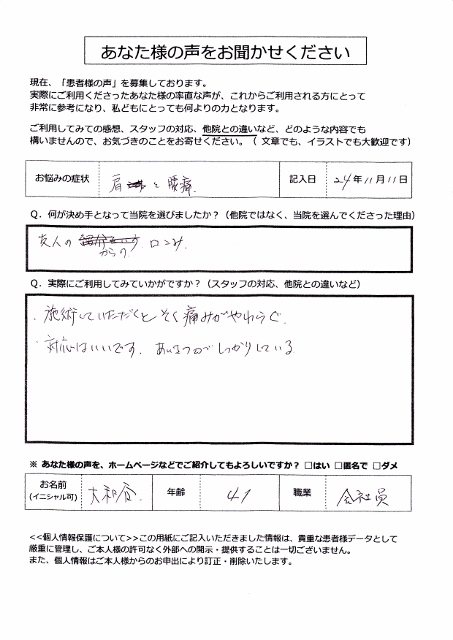 あなた様の声をお聞かせください
現在、「患者様の声」を募集しております。
実際にご利用くださったあなた様の率直な声が、これからご利用される方にとって
非常に参考になり、私どもにとっても何よりの力となります。
ご利用してみての感想、スタッフの対応、他院との違いなど、どのような内容でも
構いませんので、お気づきのことをお寄せください。（ 文章でも、イラストでも大歓迎です）
お悩みの症状 肩 と 腰痛 記入日 24年11月11日
Q．何が決め手となって当院を選びましたか？（他院ではなく、当院を選んでくださった理由）
友人の からの 口コミ.
Q．実際にご利用してみていかがですか？（スタッフの対応、他院との違いなど）
・施術していただくとすぐ痛みがやわらぐ.
・対応はいいです. あいさつがしっかりしている
※ あなた様の声を、ホームページなどでご紹介してもよろしいですか？ □はい □匿名で □ダメ
お名前 大和谷. 年齢 41 職業 会社員
(イニシャル可)
<<個人情報保護について>>この用紙にご記入いただきました情報は、貴重な患者様データとして
厳重に管理し、ご本人様の許可なく外部への開示・提供することは一切ございません。
また、個人情報はご本人様からのお申出により訂正・削除いたします。